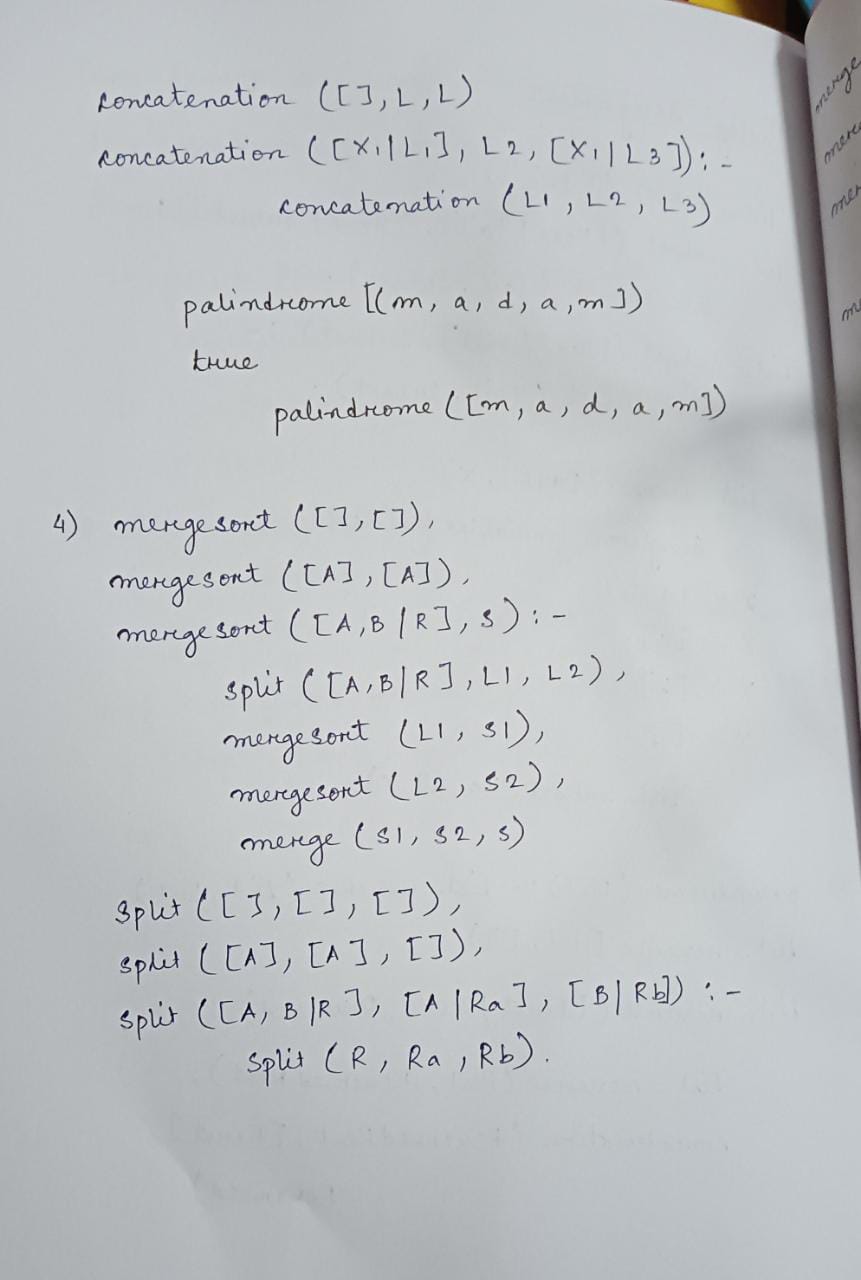 concatenation ([], L, L)
concatenation ([X1|L1], L2, [X1|L3]):-
concatenation (L1, L2, L3)
palindrome [(m, a, d, a, m])
true
palindrome ([m, a, d, a, m])
4) mergesort ([], []),
mergesort ([A], [A]),
mergesort ([A, B|R], S):-
split ([A, B|R], L1, L2),
mergesort (L1, S1),
mergesort (L2, S2),
merge (S1, S2, S)
split ([], [], []),
split ([A], [A], []),
split ([A, B|R], [A|Ra], [B|Rb]) :-
split (R, Ra, Rb).
merge